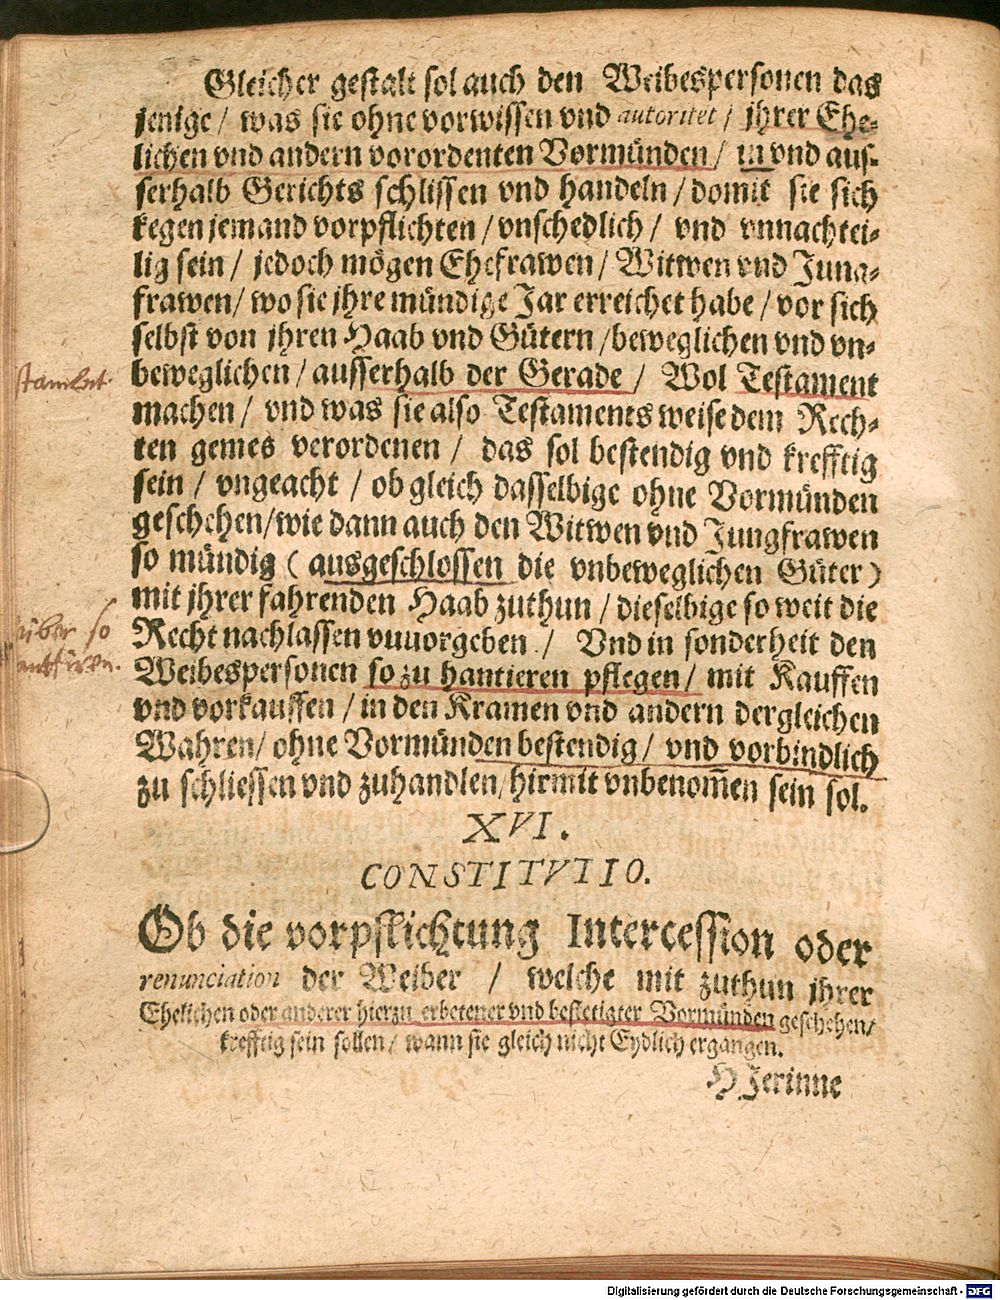 Gleicher gestalt sol auch den Weibespersonen das
jenige / was sie ohne vorwissen vnd autoritet / jhrer Ehe-
lichen vnd andern vorordenten Vormünden / in vnd aus-
serhalb Gerichts schlissen vnd handeln / domit sie sich
kegen jemand vorpflichten / vnschedlich / vnd vnnachtei-
lig sein / jedoch mögen Ehefrawen / Witwen vnd Jung-
frawen / wo sie jhre mündige Jar erreichet habe / vor sich
selbst von jhren Haab vnd Gütern / beweglichen vnd vn-
beweglichen / ausserhalb der Gerade / Wol Testament
machen / vnd was sie also Testaments weise dem Rech-
ten gemes verordenen / das sol bestendig vnd krefftig
sein / vngeacht / ob gleich dasselbige ohne Vormünden
geschehen / wie dann auch den Witwen vnd Jungfrawen
so mündig ( ausgeschlossen die vnbeweglichen Güter )
mit jhrer fahrenden Haab zuthun / dieselbige so weit die
Recht nachlassen vuuorgeben / Vnd in sonderheit den
Weibespersonen so zu hantieren pflegen / mit Kauffen
vnd vorkauffen / in den Kramen vnd andern dergleichen
Wahren / ohne Vormünden bestendig / vnd vorbindlich
zu schliessen vnd zuhandlen / hirmit vnbenom̃en sein sol.
XVI.
CONSTITVTIO.
Ob die vorpflichtung Intercession oder
renunciation der Weiber / welche mit zuthun jhrer
Ehelichen oder anderer hierzu erbetener vnd bestetigter Vormünden geschehen /
krefftig sein sollen / wann sie gleich nicht Eydlich ergangen.
HJerinne
über so
Digitalisierung gefördert durch die Deutsche Forschungsgemeinschaft - DFG